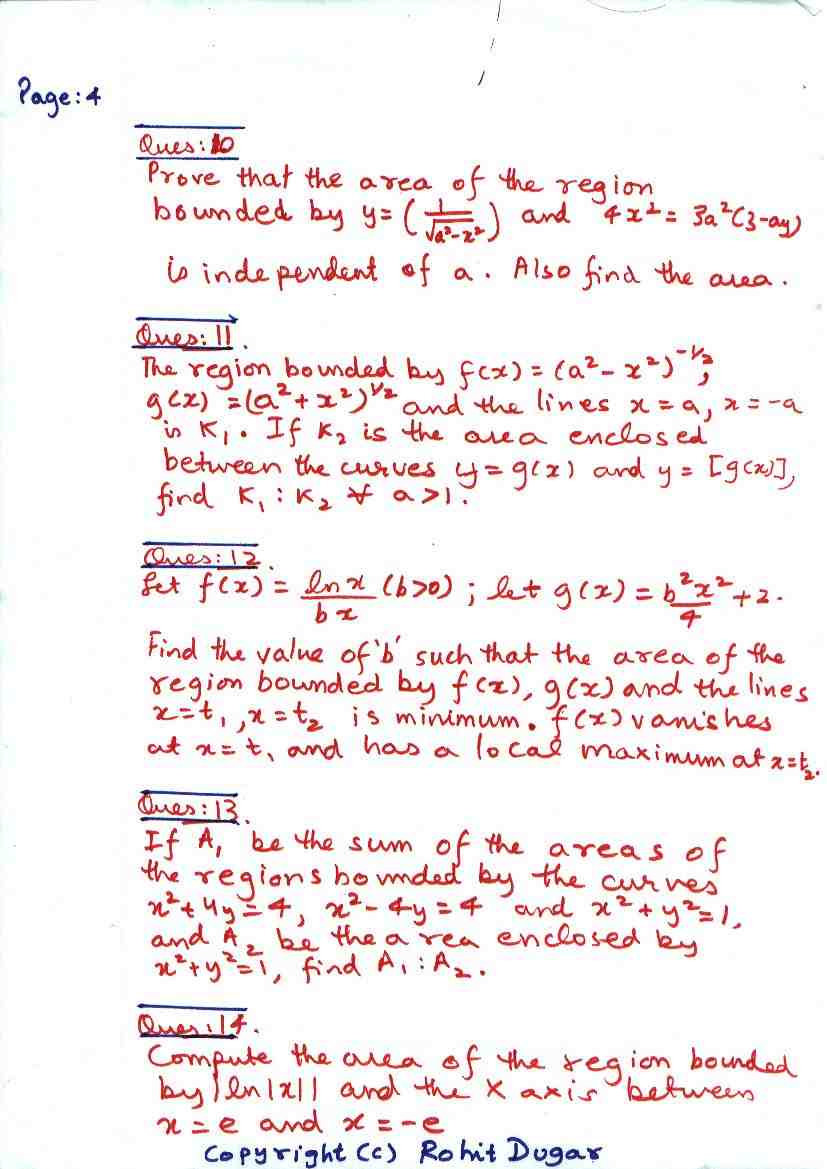 Page: 4
Ques: 10
Prove that the area of the region
bounded by y = (1/√(a²-x²)) and 4x² = 3a²(3-ay)
is independent of a. Also find the area.
Ques: 11.
The region bounded by f(x) = (a² - x²)^(-1/2);
g(x) = (a² + x²)^(1/2) and the lines x = a, x = -a
is K₁. If K₂ is the area enclosed
between the curves y = g(x) and y = [g(x)],
find K₁ : K₂ ∀ a > 1.
Ques: 12.
Let f(x) = ln x/bx (b>0) ; let g(x) = b²x²/4 + 2.
Find the value of 'b' such that the area of the
region bounded by f(x), g(x) and the lines
x = t₁, x = t₂ is minimum. f(x) vanishes
at x = t, and has a local maximum at x = t₂.
Ques: 13.
If A₁ be the sum of the areas of
the regions bounded by the curves
x² + 4y = 4, x² - 4y = 4 and x² + y² = 1,
and A₂ be the area enclosed by
x² + y² = 1, find A₁ : A₂.
Ques: 14.
Compute the area of the region bounded
by |ln|x|| and the X axis between
x = e and x = -e
Copyright (c) Rohit Dugar